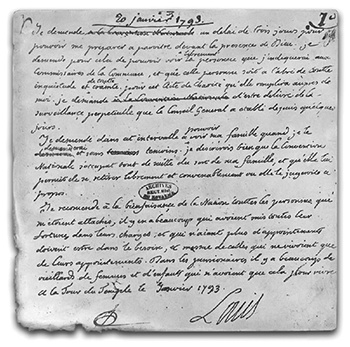 20 janvier 1793.
Je demande un delai de trois jours pour
pouvoir me preparer a paroitre devant la presence de Dieu. je
demande pour cela de pouvoir voir librement la personne que j'indiquerai aux
Commissaires de la Commune, et que cette personne soit a l'abri de toute
inquietude et crainte, pour cet acte de charité qu'elle remplira aupres de
moi. je demande d'etre delivré de la
surveillance perpetuelle que le Conseil General a etablie depuis quelques
jours.
Je demande dans cet intervalle a pouvoir voir ma famille quand je le
demanderai et sans temoins. je desirerois bien que la Convention
Nationale s'occupat tout de suite du sort de ma famille, et qu'elle lui
permit de se retirer librement et convenablement ou elle le jugeroit a
propos.
ARCHIVES
Je recommande a la bienfaisance de la Nation toutes les personnes qui
m'etoient attachées, il y en a beaucoup qui avoient mis toutes leur
fortunes dans leurs charges, et qui n'ayant plus d'appointements
doivent estre dans le besoin, et mesme de celles qui ne vivoient que
de leurs appointements. Dans les pensionnaires il y a beaucoup de
vieillards de femmes et d'enfants qui n'avoient que cela pour vivre
a la Tour du Temple le Janvier 1793.
Louis